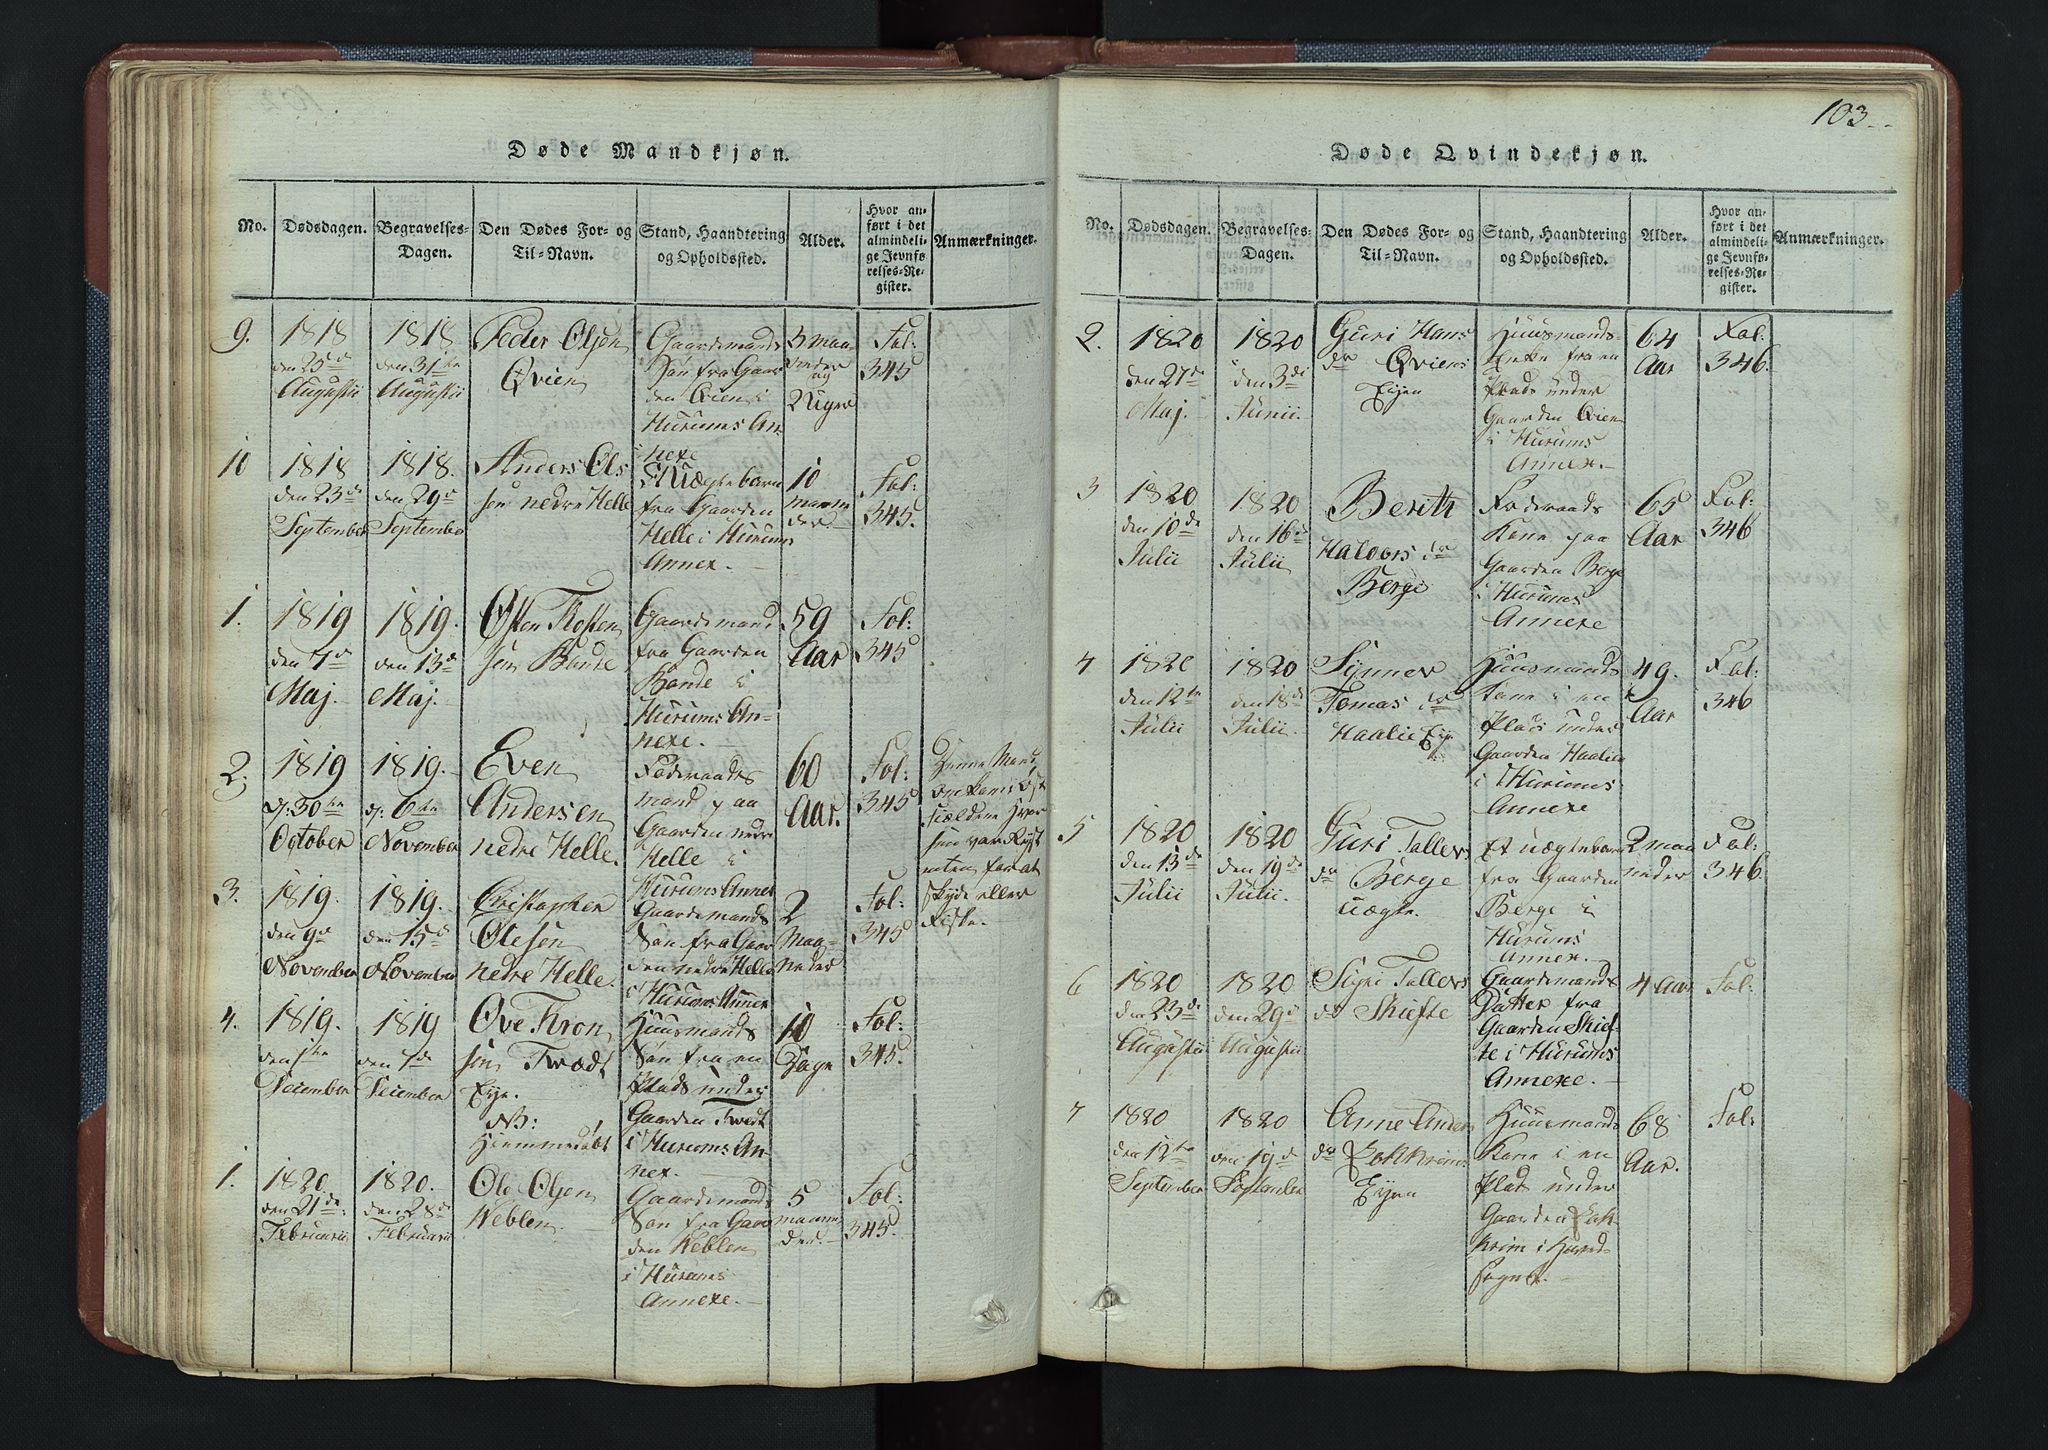 Døde Mandkjøn.
No. Dødsdagen. Begravelses-Dagen. Den Dødes For- og Til-Navn. Stand, Haandtering og Opholdssted. Alder. Hvor anført i det almindelige Jevnførelses-Register. Anmærkninger.
9.
1818
den 25de
Augustii
1818
den 31te
Augustii
Peder Olsen
Qvien
Gaardsmands
Søn fra Gaar
den Qvien i
Hurums An
nexe
3 Maa
neder
og
2 Uger
Fol:
345
10
1818
den 23de
September
1818.
den 29de
September
Anders Ols
sen nedre Helle
Et Uægte barn
fra Gaarden
Helle i Hurums
Annex.
10
maane
der
Fol:
345.
1.
1819
den 7de
Maj.
1819.
den 13de
Maj.
Østen Tosten
sen Bunde
Gaardsmand
fra Gaarden
Bunde i
Hurums An-
nexe.
59
Aar
Fol:
345
2.
1819
d: 30te
October
1819.
d: 6te
November
Even
Andersen
nedre Helle.
Føderaads
mand paa
Gaarden nedre
Helle i
Hurums Annex
60
Aar.
Fol:
345
Denne Mand
omkom i Øst
fieldene hvor
han var Rejst
enten for at
skyde eller
Fiske.
3.
1819.
den 9de
November
1819.
den 15de
November
Cristopher
Olesen
nedre Helle.
Gaardsmands
Søn fra Gaar
den nedre Helle
i Hurums Annex
2
Maa-
neder
Fol:
345
4.
1819.
den 1te
December
1819
den 7de
December
Ove Tron
sen Twedt
Eje.
NB:
Hiemmedøbt
Huusmands
Søn fra en
Plads under
Gaarden Twedt
i Hurums An-
nex.
10
Dage
Fol:
345.
1.
1820.
den 21de
Februarii
1820.
den 28de
Februarii
Ole Olsen
Keblen
Gaardsmands
Søn fra Gaar
den Keblen
i Hurums
Annexe.
5
maane
der.
Fol:
345.
103
Døde Qvindekjøn.
No. Dødsdagen. Begravelses-Dagen. Den Dødes For- og Til-Navn. Stand, Haandtering og Opholdssted. Alder. Hvor anført i det almindelige Jevnførelses-Register. Anmærkninger.
2.
1820
den 27de
Maj.
1820
den 3die
Junii.
Guri Hans
dr Qviens
Ejen
Huusmands-
Enke fra en
Plads under
Gaarden Qvien
i Hurums
Annexe.
64
Aar
Fol:
346.
3
1820
den 10de
Julii
1820
den 16de
Julii
Berith
Haldors dr
Berge
Føderaads
Kone paa
Gaarden Berge
i Hurums
Annexe
65
Aar
Fol:
346
4
1820
den 12te
Julii
1820
den 18de
Julii.
Synner
Tomas dr
Haalie Eje
Huusmands
Kone i en
Plads under
Gaarden Haalien
i Hurums
Annexe
49.
Aar
Fol:
346
5
1820
den 13de
Julii
1820
den 19de
Julii.
Guri Tollevs
dr Berge
Uægte.
Et uægte barn
fra Gaarden
Berge i
Hurums
Annex.
2 maa
neder
Fol:
346.
6
1820
den 23de
Augustii
1820
den 29de
Augustii
Sigri Tollevs
dr Skiefte
Gaardsmands
Datter fra
Gaarden Skief-
te i Hurums
Annexe.
4 Aar
Fol:
7
1820
den 12te
September
1820
den 19de
September
Anne Anders
dr
Ejen
Huusmands
Kone i en
Plads under
Gaarden
i Hoved
Sognet.
68
Aar.
Fol: